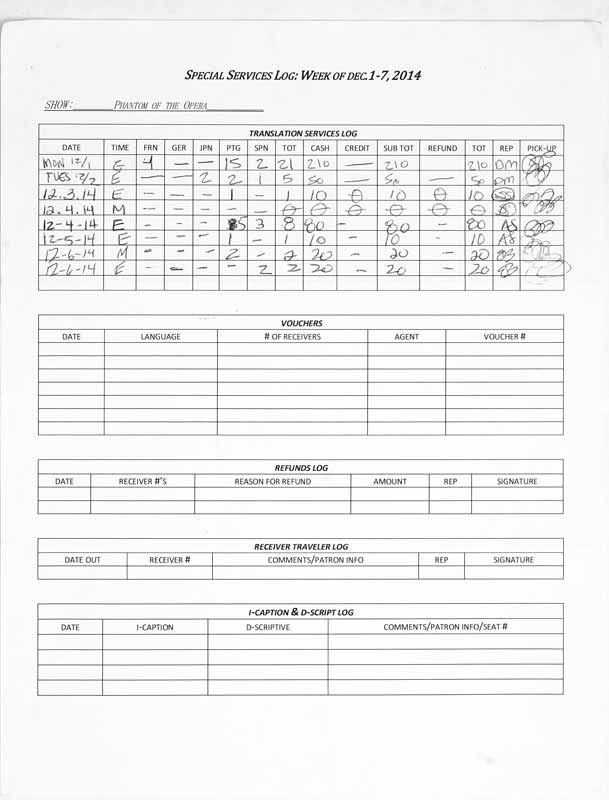 SPECIAL SERVICES LOG: WEEK OF DEC.1-7, 2014
SHOW: PHANTOM OF THE OPERA
TRANSLATION SERVICES LOG
DATE TIME FRN GER JPN PTG SPN TOT CASH CREDIT SUB TOT REFUND TOT REP PICK-UP
MON 12/1 E 4 — — 15 2 21 210 — 210 210 DM
TUES 12/2 E — — 2 2 1 5 50 — 50 — 50 DM
12.3.14 E — — — 1 - 1 10 θ 10 θ 10 SS
12.4.14 M — — — — — θ θ θ θ θ θ
12-4-14 E - - - 5 3 8 80 - 80 - 80 AS
12-5-14 E - - - 1 - 1 10 - 10 - 10 AS
12-6-14 M - - - 2 - 2 20 - 20 - 20
12-6-14 E - - - - 2 2 20 - 20 - 20
VOUCHERS
DATE LANGUAGE # OF RECEIVERS AGENT VOUCHER #
REFUNDS LOG
DATE RECEIVER #'S REASON FOR REFUND AMOUNT REP SIGNATURE
RECEIVER TRAVELER LOG
DATE OUT RECEIVER # COMMENTS/PATRON INFO REP SIGNATURE
I-CAPTION & D-SCRIPT LOG
DATE I-CAPTION D-SCRIPTIVE COMMENTS/PATRON INFO/SEAT #